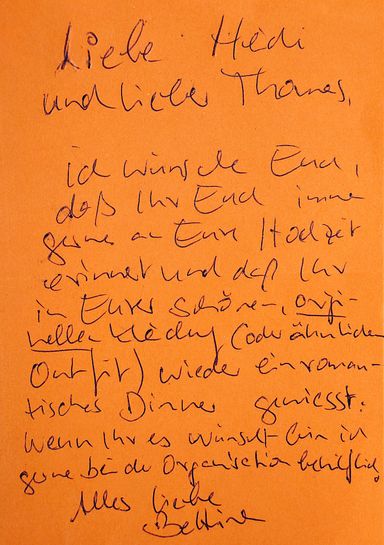 Liebe Hedi
und lieber Thomas,
ich wünsche Euch,
daß Ihr Euch immer
gerne an Eure Hochzeit
erinnert und daß Ihr
in Eurer schönen, origi-
nellen Kleidung (oder ähnlichen
Outfit) wieder ein roman-
tisches Dinner geniesst.
Wenn Ihr es wünscht bin ich
gerne bei der Organisation behilflich.
Alles Liebe
Bettina